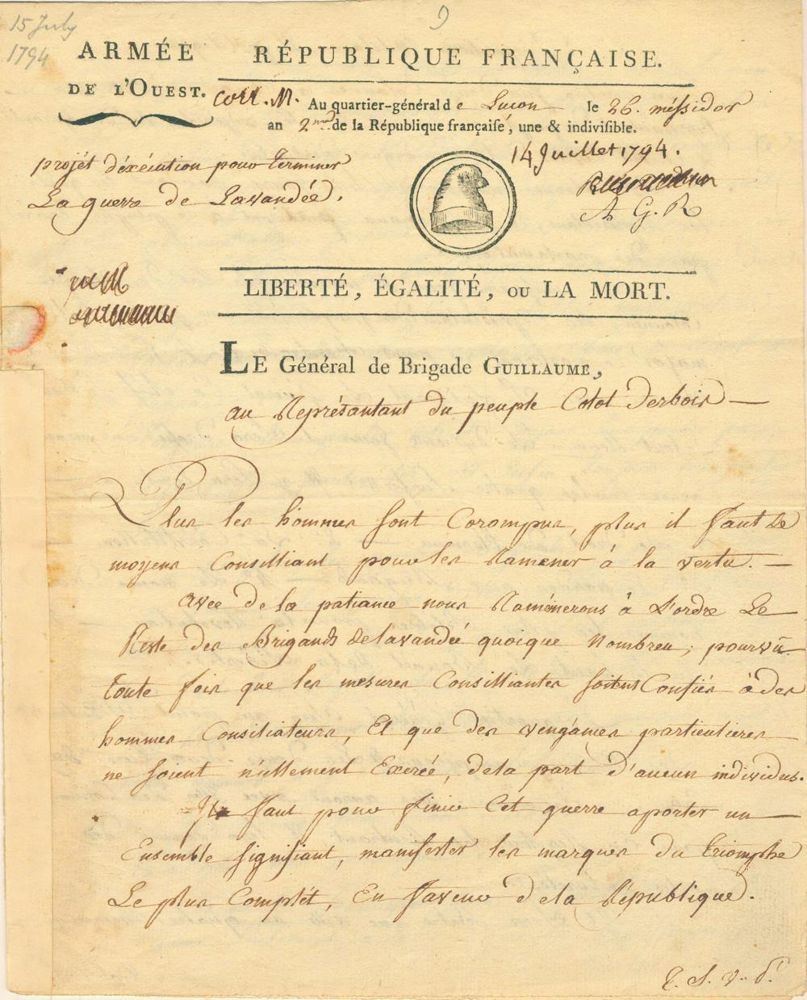 15 July
1794
ARMÉE
DE L'OUEST.
RÉPUBLIQUE FRANÇAISE.
Coll. M. Au quartier-général de Luçon le 26. méssidor
an 2 de la République françaiſe, une & indiviſible.
14 Juillet 1794.
projét d'éxécution pour terminer
La guerre de Lavandée.
A G. R
LIBERTÉ, ÉGALITÉ, OU LA MORT.
LE Général de Brigade GUILLAUME,
au Représantant du peuple Colot Derbois
Plus les hommes sont Corompus, plus il faut de
moyens Consilliant pour les Ramener à la vertu.
avec de la patiance nous Raménerons à L'ordre Le
Reste des Brigands de lavandée quoique Nombreu, pourvû
toute fois que les mesures Consilliantes soient Confiés à des
hommes Consiliateurs, Et que des vengâmes particulieres
ne soient n'ullement Exercé, dela part d'aucun individus.
Il faut pour finir Cet guerre aporter un
Ensemble signifiant, manifester les marques du triomphe
Le plus Complét, En faveur dela République.
T. S. V. P.